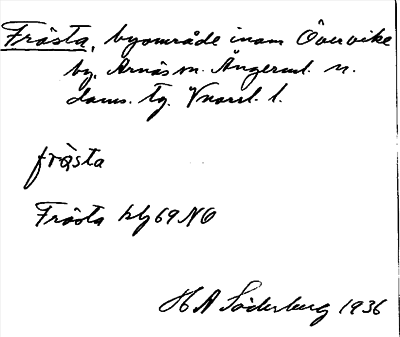 Frösta, byområde inom Övervike
by, Arnäs sn. Ångerml. n.
doms. tg. Vnorrl. l.
frösta
Frösta blj 69 NO
H A Söderberg 1936